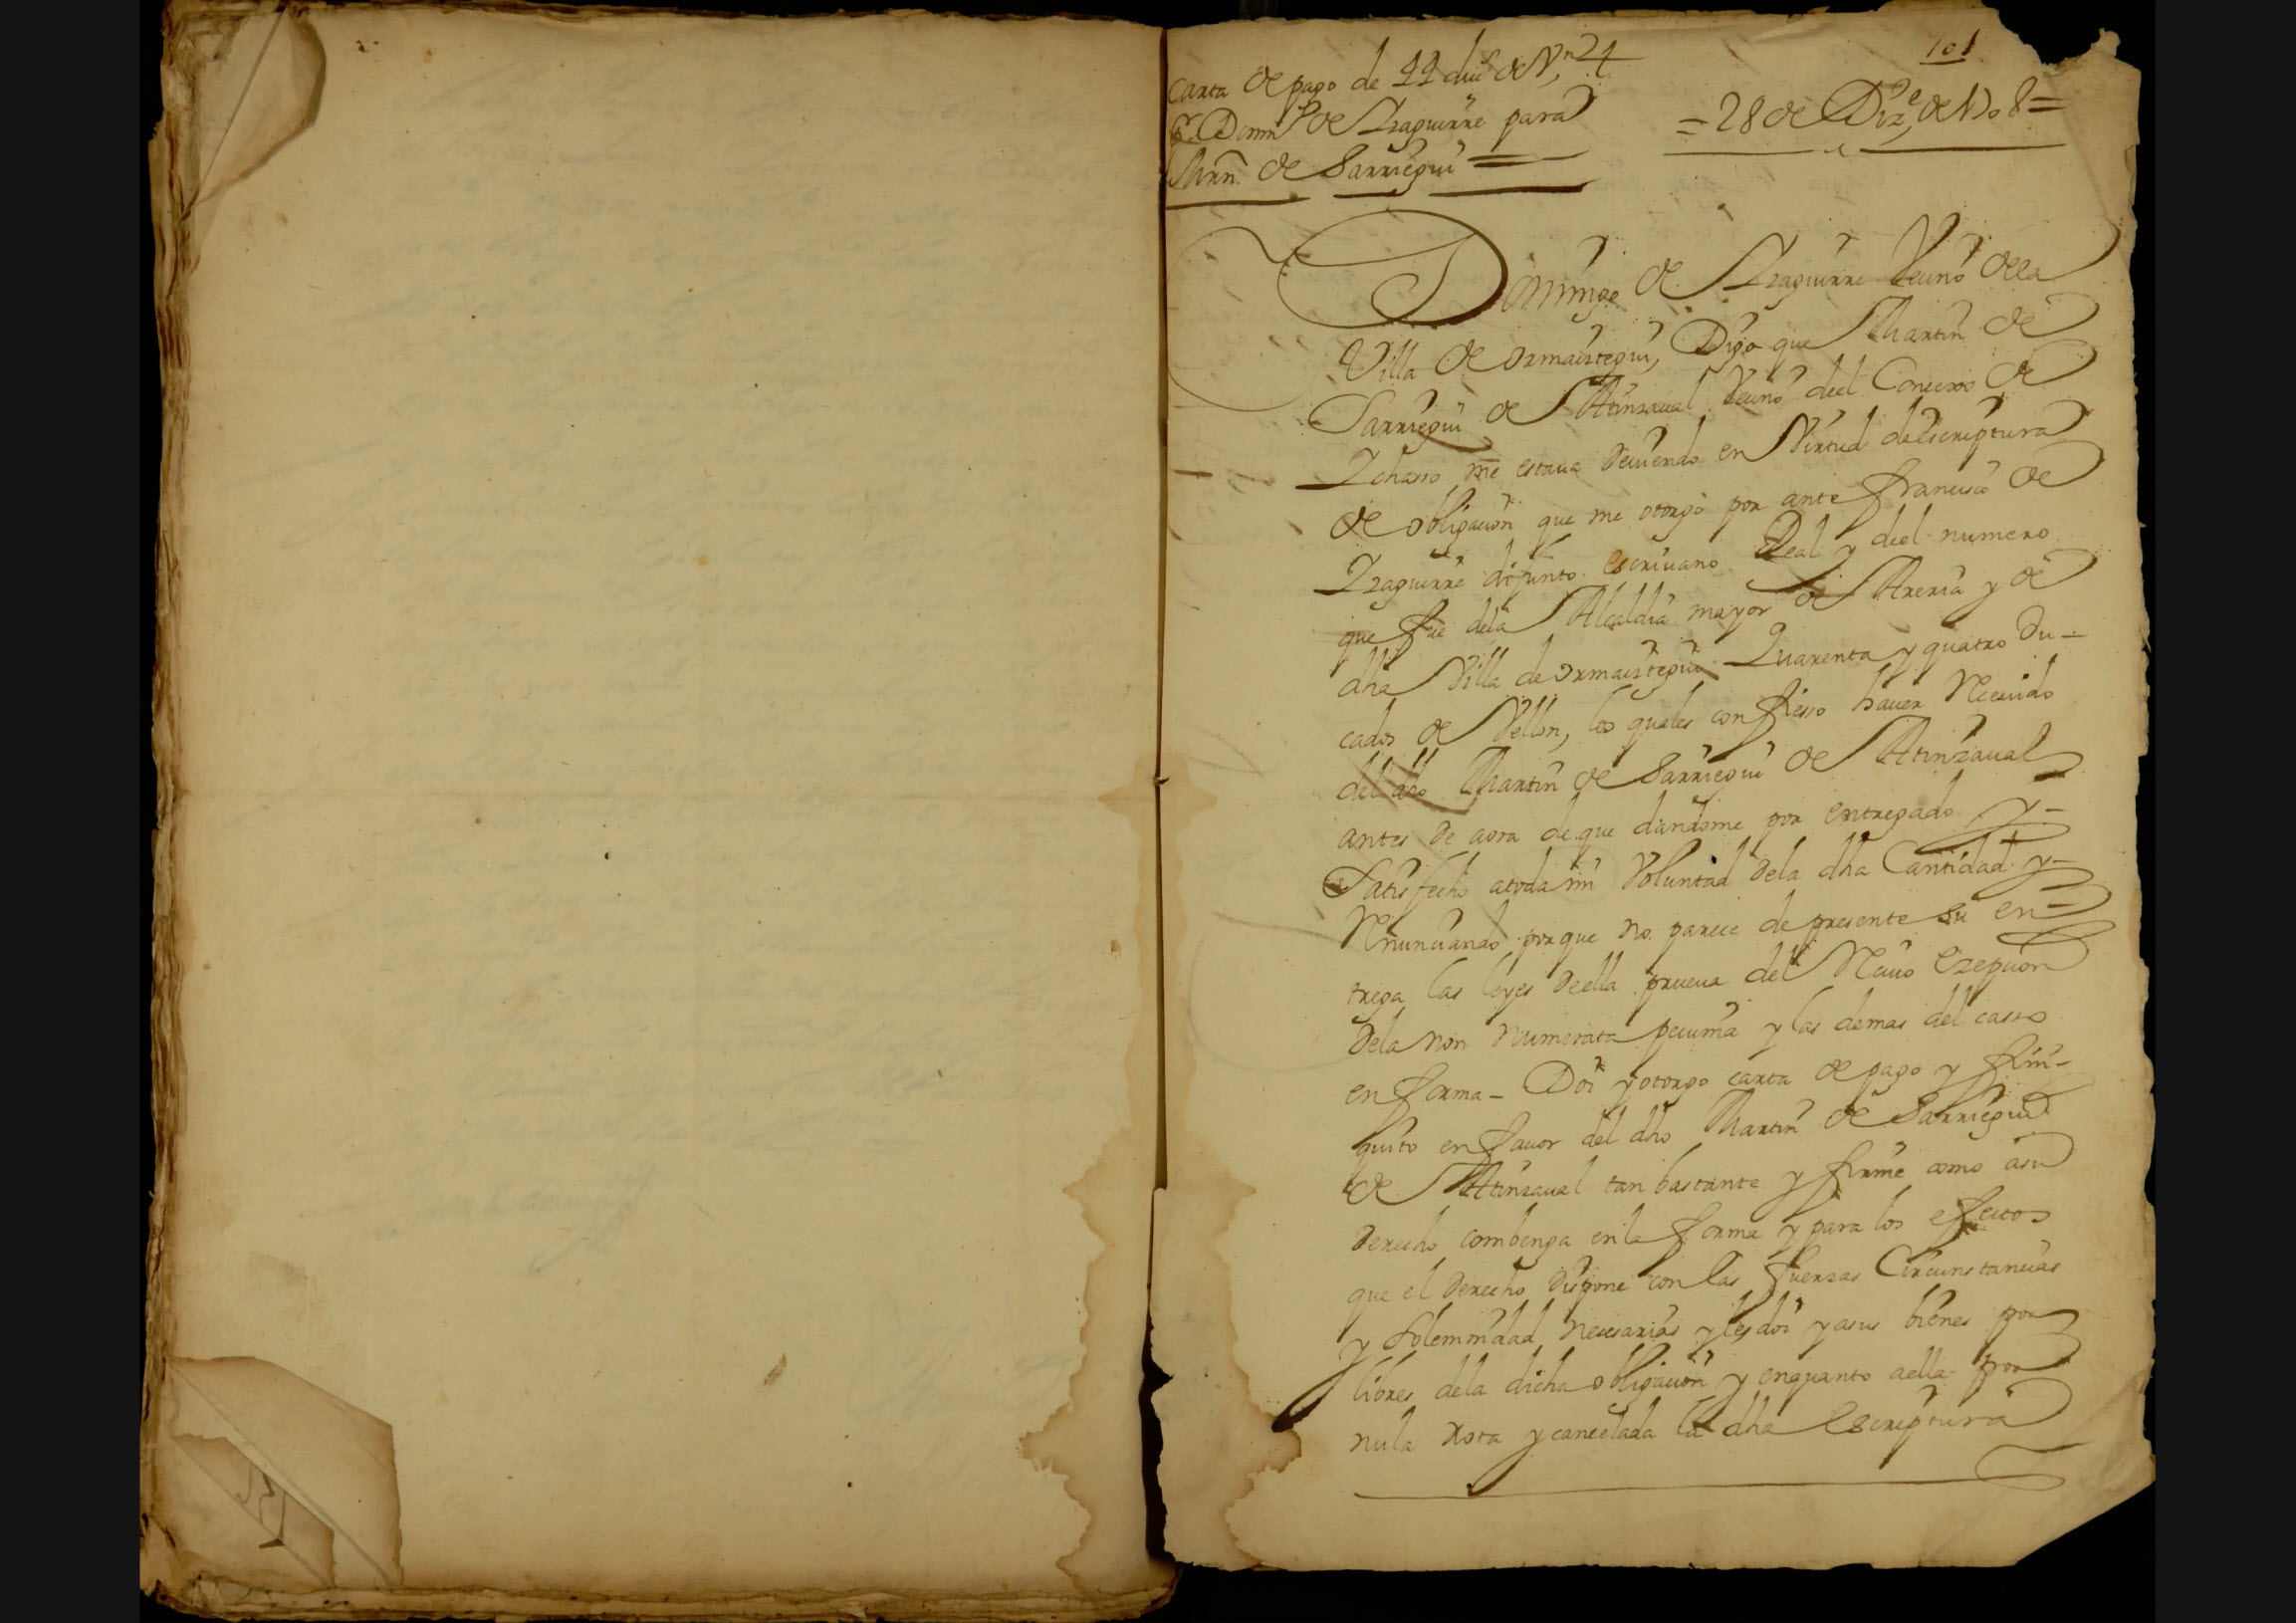 101
Carta de pago de 44 dus de Vn
Domo de Yzaguirre para
Mrn. de Sarriegui =
= 28 de Dize de 1708 =
Domingo de Yzaguirre Vecino dela
Villa de Ormaiztegui, Digo que Martin de
Sarriegui de Atinzaual Vecino del Concexo de
Ychasso me estaua deuiendo en Virtud de escriptura
de obligacion que me otorgò por ante francisco de
Yzaguirre difunto escriuano Real y del numero
que fue dela Alcaldia mayor de Areria y de
dha Villa de Ormaiztegui Quarenta y quatro Du-
cados de Vellon, los quales confiesso hauer Receuido
del dho Martin de Sarriegui de Atinzaual
antes de aora de que dandome por entregado y-
Satisfecho atoda mi Voluntad dela dha Cantidad y-
Renunciando porque no parece de presente su en-
trega las leyes deella prueua del Reciuo Ezepcion
dela non numerata pecunia y las demas del casso
en forma - Doi y otorgo carta de pago y fini-
quito en fauor del dho Martin de Sarriegui
de Atinzaual tan bastante y firme como asu
derecho combenga enla forma y para los efectos
que el derecho dispone con las fuerzas Circunstancias
y solemnidad necesarias y les doi y asus bienes por
libres dela dicha obligacion y enquanto aella por
nula Rota y cancelada la dha Escriptura